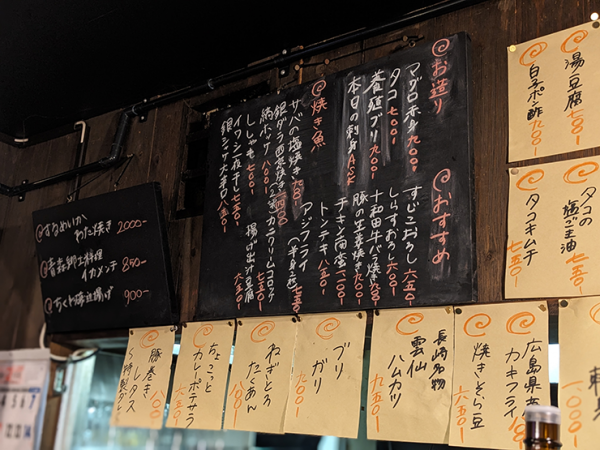 お造り
マグロ赤身 九〇〇-
タコ 七〇〇-
養殖ブリ 九〇〇-
本日の刺身 ASK
焼き魚
サバの塩焼き 九〇〇-
銀ダラ西京焼き
縞ホッケ 八〇〇-
ししゃも 七〇〇-
イワシ丸干し 七五〇-
銀シャケ大辛口 八五〇-
おすすめ
すじこおろし 六五〇-
しらすおろし 六〇〇-
十和田牛バラ焼き 九〇〇-
豚の生姜焼き 九〇〇-
チキン南蛮 一、一〇〇-
トンテキ 八五〇-
アジフライ
(半身二枚) 七五〇-
カニクリームコロッケ 七五〇-
揚げ出汁豆腐 六五〇-
するめいか
わた焼き 2000-
青森郷土料理
イカメンチ 850-
ちくわ磯辺揚げ 900-
湯豆腐 七五〇-
白子ポン酢 九〇〇-
タコの
塩ごま油 七五〇-
タコキムチ 七五〇-
豚巻き
レタス
ちょこっと
カレーポテサラ
ねぎとろ
たくあん
ブリ
ガリ
長崎名物
雲仙
ハムカツ 九五〇-
焼きそら豆 六五〇-
広島県産
カキフライ